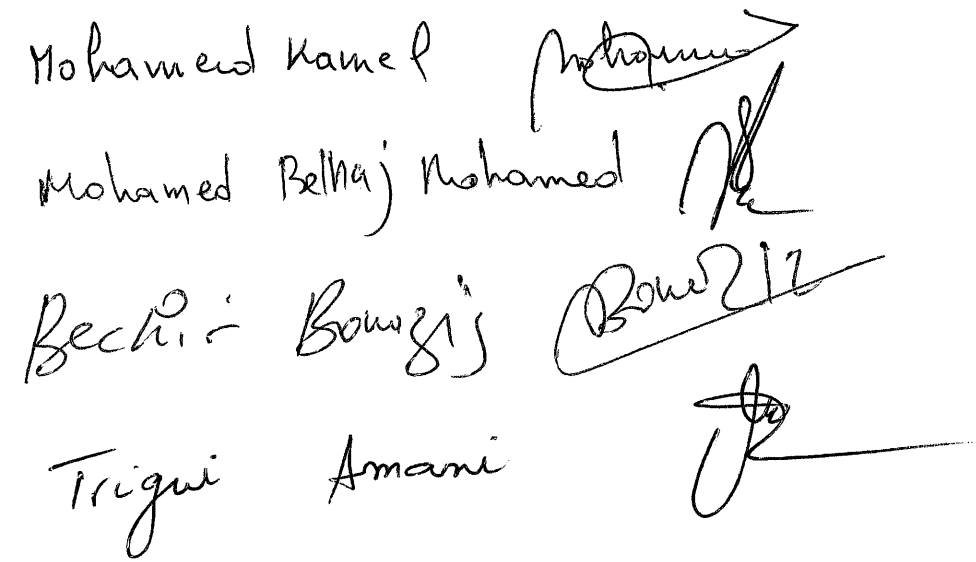 Mohamed Kamel Mohamed
Mohamed Belhaj Mohamed
Bechir Bouaziz Bouaziz
Trigui Amani